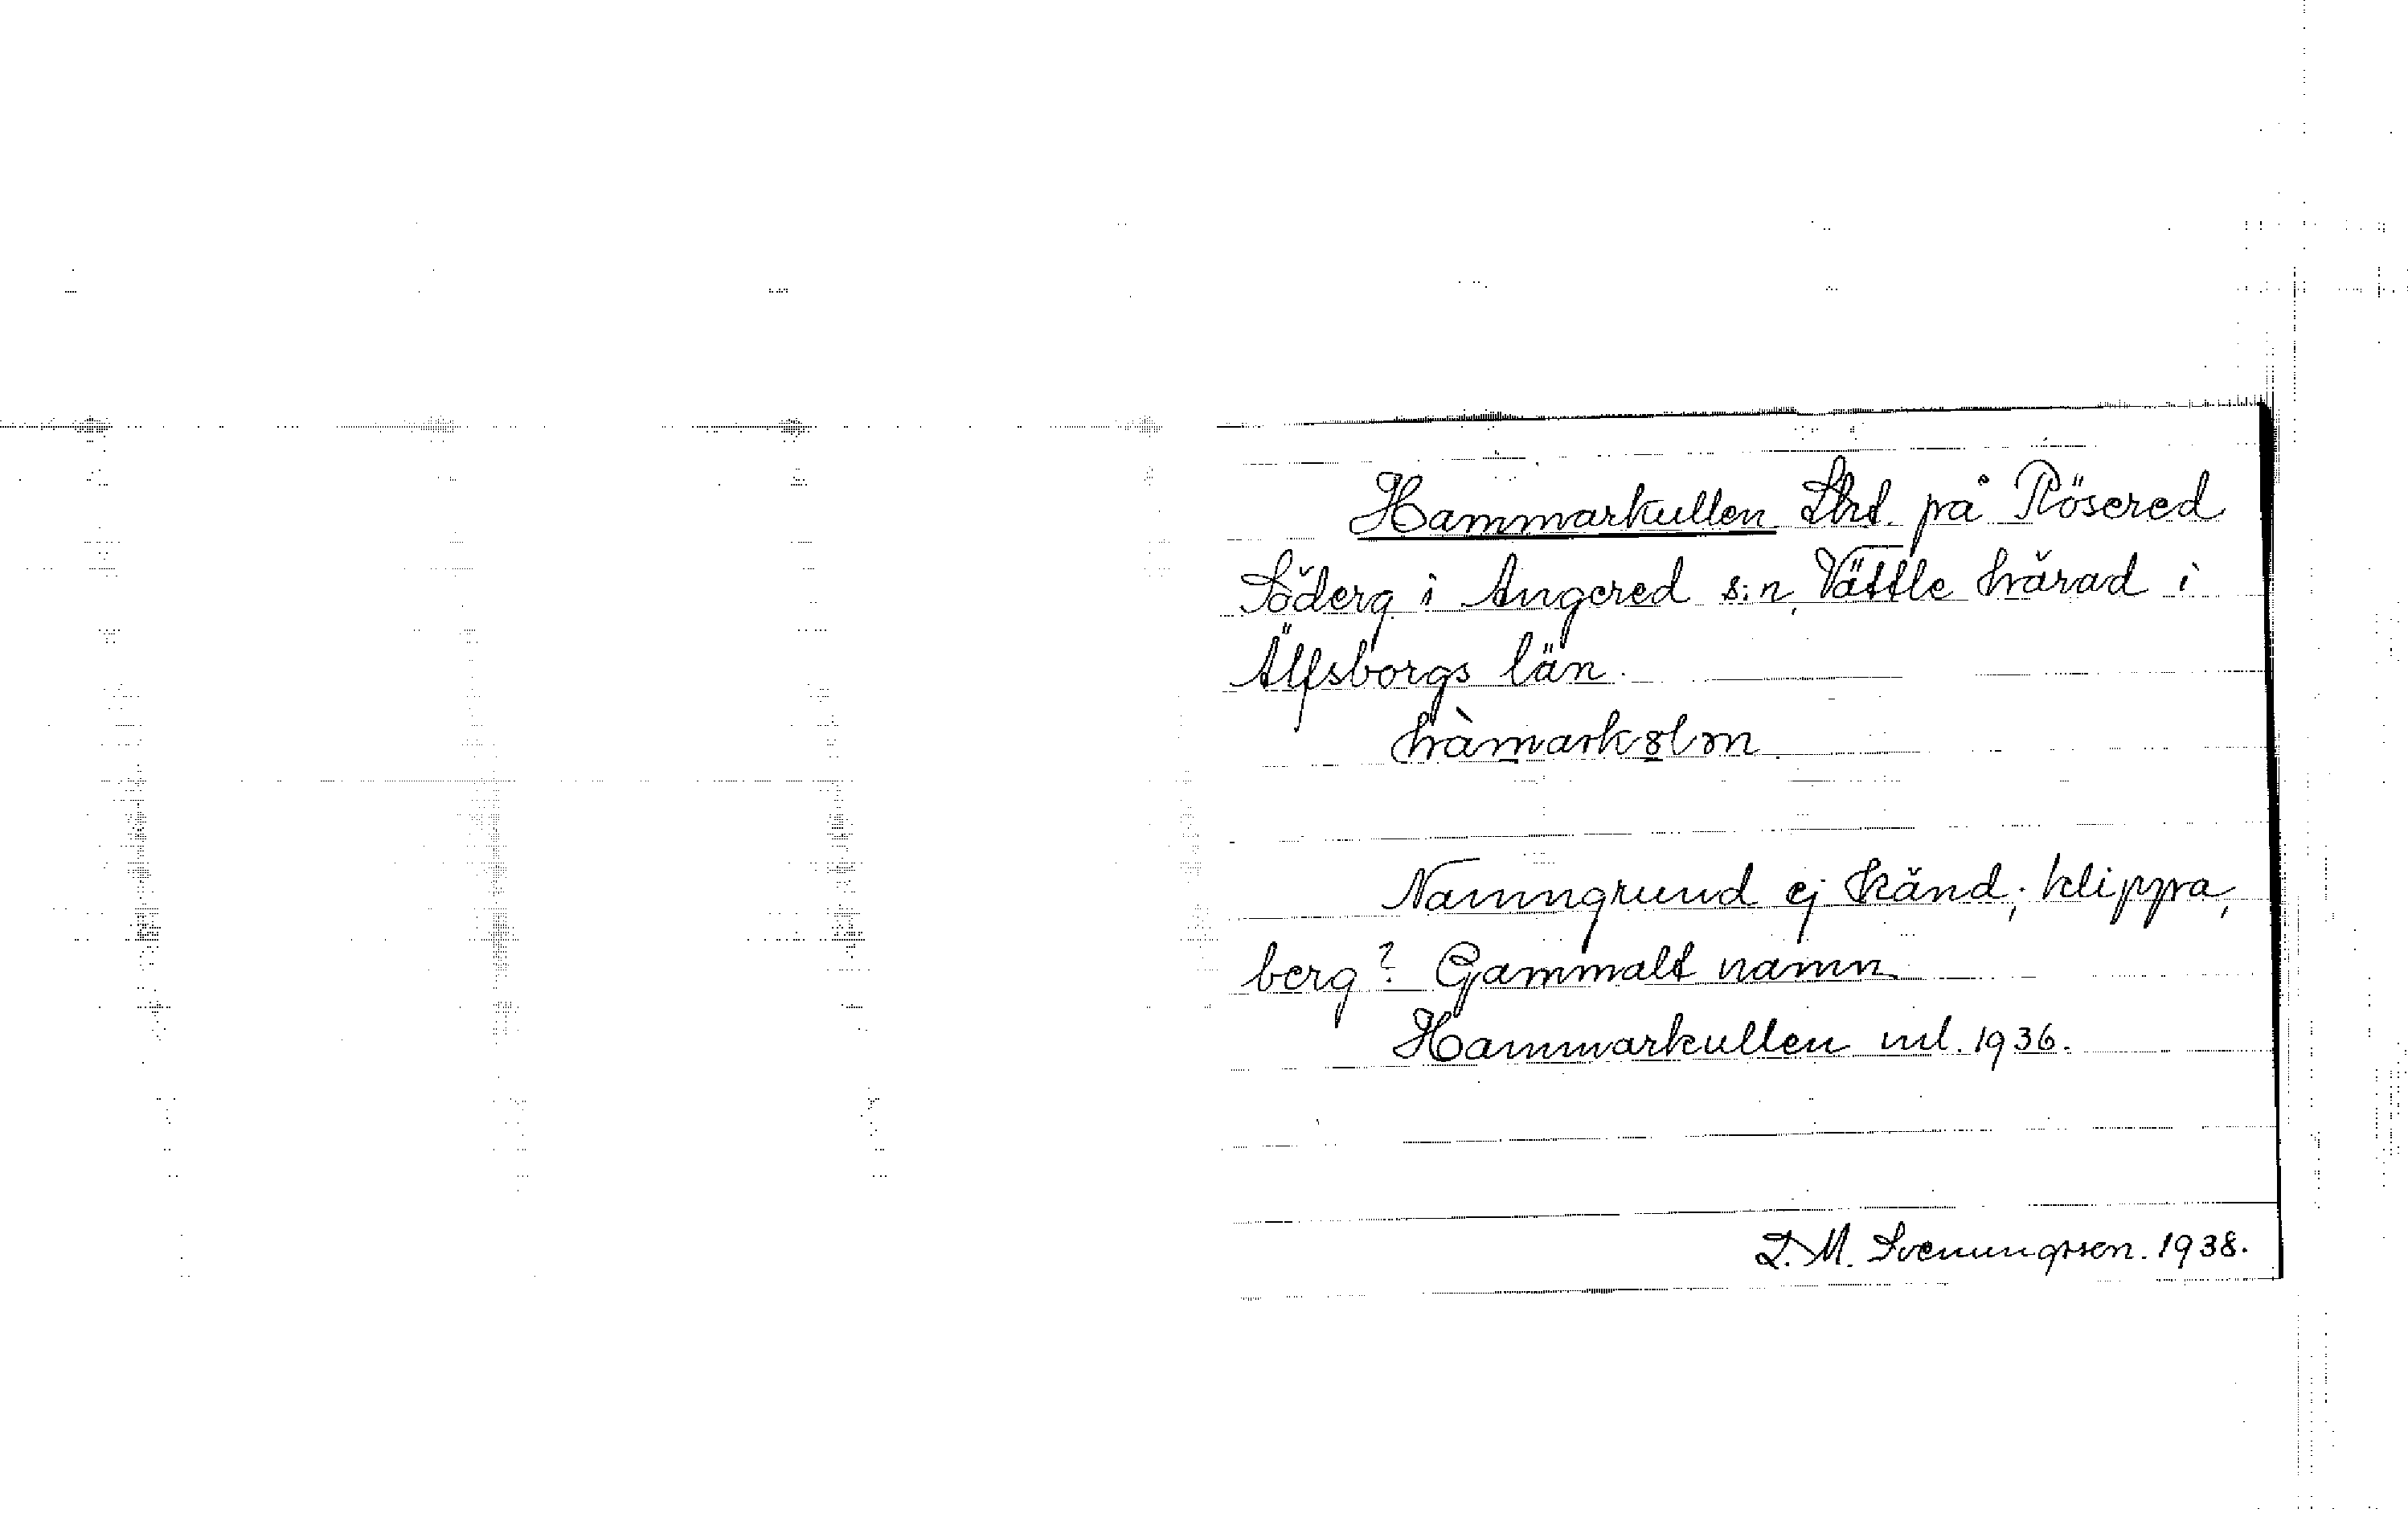 Hammarkullen Lht. på Rösered
Söderg i Angered s:n, Vättle härad i
Älfsborgs län.
hàmarkȣlɷn
Namngrund ej känd; klippa,
berg? Gammalt namn.
Hammarkullen ml. 1936.
D. M. Svenungsson. 1938.